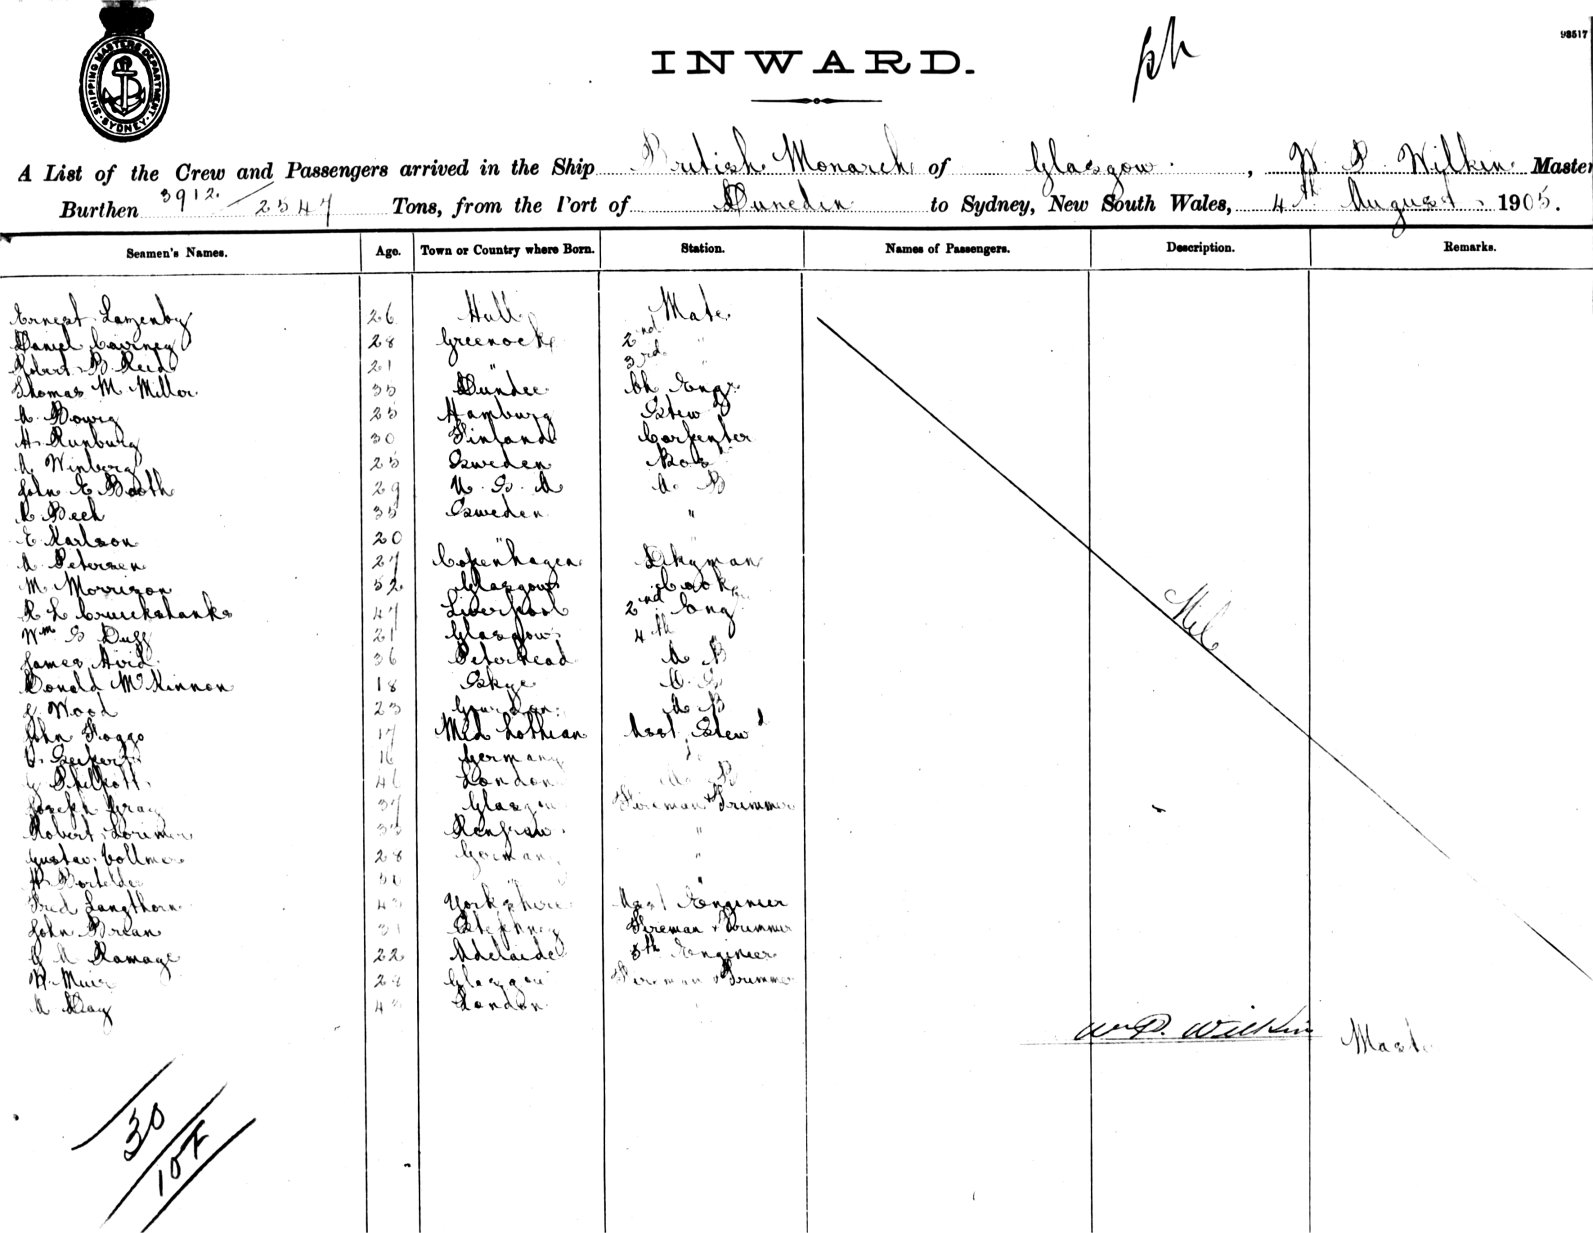 SHIPPING MASTERS DEPARTMENT SYDNEY
98517
INWARD.
A List of the Crew and Passengers arrived in the Ship British Monarch of Glasgow, W. P. Wilkin Master
Burthen 3912/2547 Tons, from the Port of Dunedin to Sydney, New South Wales, 4th August 1905.
Seamen's Names. Age. Town or Country where Born. Station. Names of Passengers. Description. Remarks.
Ernest Lazenby 26 Hull Mate
Daniel Cairney 28 Greenock 2nd "
Robert B Reid 21 " 3rd "
Thomas M Miller 35 Dundee Ch Engr
A. Bowig 25 Hamburg Stewd
H. Runburg 30 Finland Carpenter
A Winberg 25 Sweden Bos
John E Booth 29 U. S. A A. B
Beck 35 Sweden "
E Karlson 20 "
A Petersen 27 Copenhagen Dkyman
M Morrison 52 Glasgow Cook
R L Cruickshanks 47 Liverpool 2nd Eng
Wm S Duff 21 Glasgow 4th "
James Avid 36 Peterhead A B
Donald McKinnon 18 Skye O. S
J Wood 23 Gourdon A B
John Foggo 17 Mid Lothian Asst Stewd
16 Germany
G Philpott 46 London A B
Joseph Gray 37 Glasgow Fireman & Trimmer
Robert Lorimer 35 Renfrew "
Gustav Vollmer 28 Germany "
30 " "
Fred Langthorn Yorkshire Asst Engineer
John Brean Stepney Fireman & Trimmer
A Ramage 22 Adelaide 5th Engineer
W. Muir 28 Glasgow Fireman & Trimmer
A Day London
Nil
Wm P. Wilkin Master
30
10 F